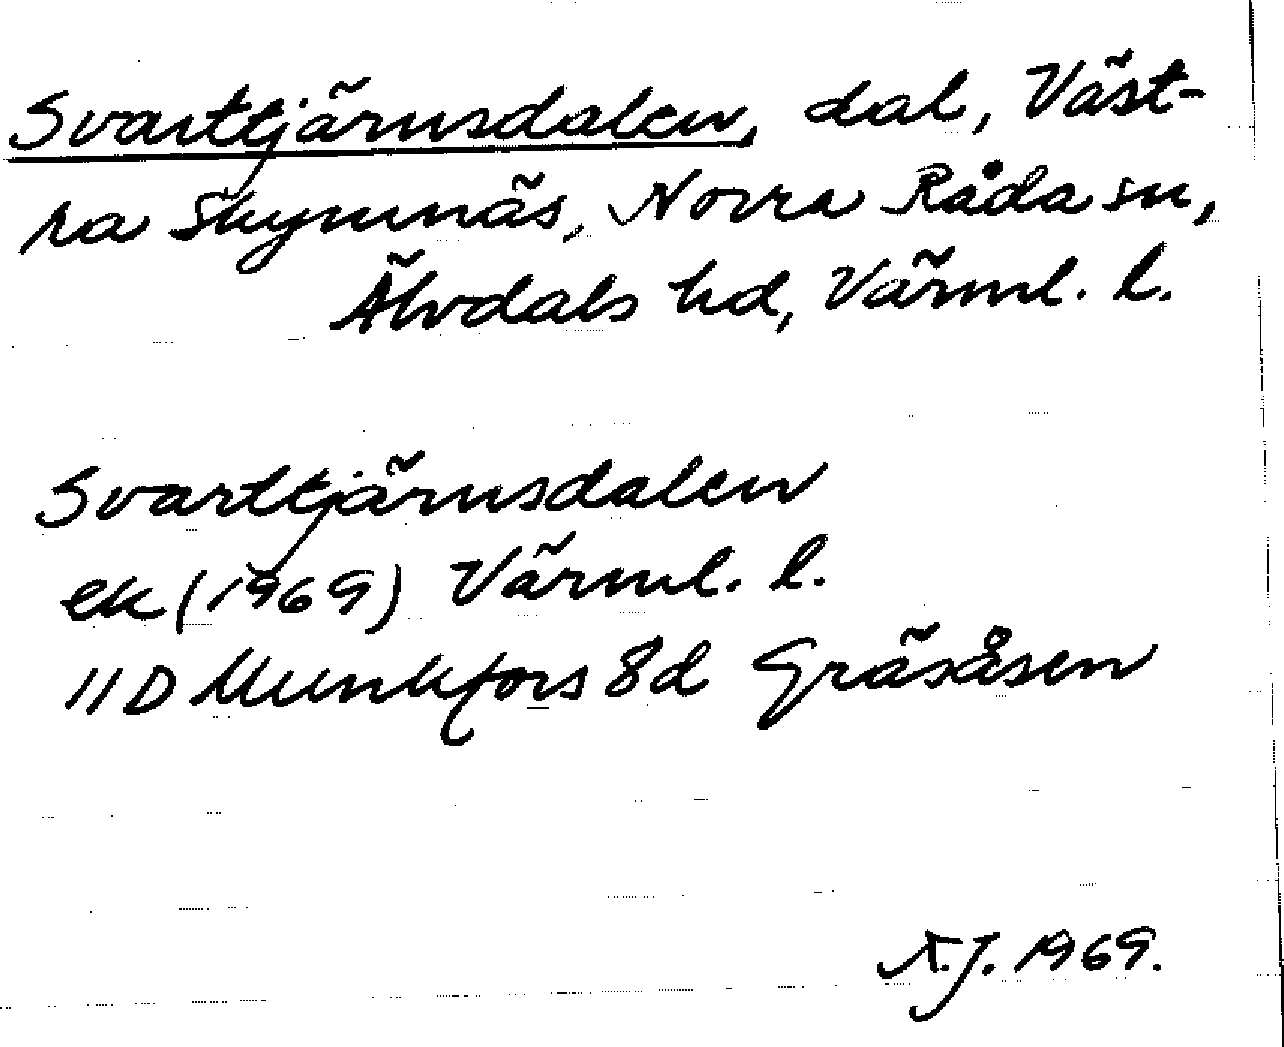 Svarttjärnsdalen, dal, Väst-
ra Skymnäs, Norra Råda sn,
Älvdals hd, Värml. l.
Svarttjärnsdalen
ek (1969) Värml. l.
11D Munkfors 8d Gräsåsen
A.J. 1969.